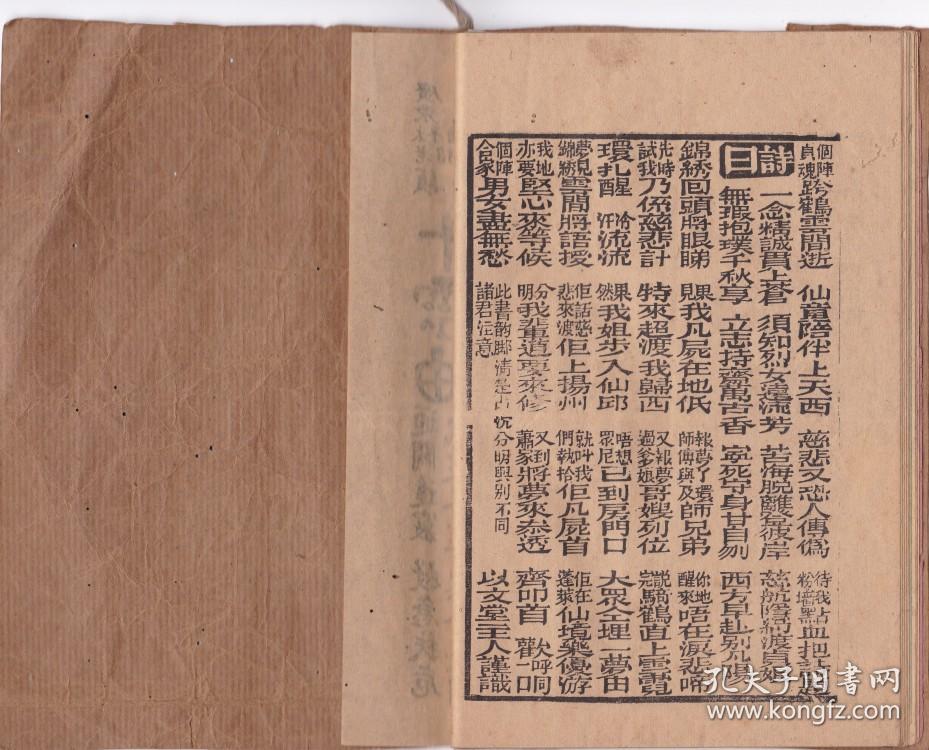 個陣貞魂跨鶴雲間逝 仙童陪伴上天西 慈悲又恐人傳偽 待我粉墻血把
詩曰 一念精誠貫上蒼 須知烈女邁流芳 苦海脫離登彼岸 慈航隱約渡貞娘
無瑕抱璞千秋享 立志持齋萬古香 寧死守身甘自刎 西方早赴別凡陽
錦綉回頭將眼睇 我凡屍在地低 報夢了環師傅與及師兄弟 你地醒來唔在淚悲啼
先時試我乃係慈悲計 特來超渡我歸西 又報夢過爹娘哥嫂列位 說完騎馬鶴直上雲霓
環扎醒 冷汗流流 果然我姐步入仙邱 唔想眾尼已到房門口 大眾仝埋一夢由
夢見錦綉雲間將語授 佢話慈悲來渡佢上揚州 就叫我們執拾佢凡屍首 佢在蓬萊仙境樂優游
我地亦要堅心來等候 分明我輩道要來修 又到蕭家將夢來參透 齊叩首 歡呼同一口
個陣合家男女盡無愁 此書韵脚清楚古沉分明與別不同 諸君注意 以文堂主人謹識
孔夫子旧书网
www.kongfz.com